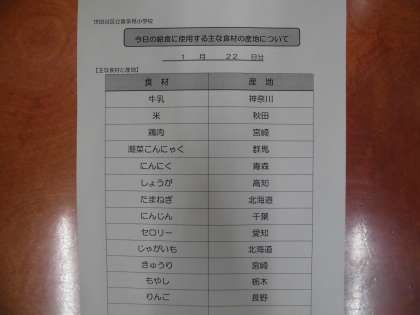 今日の給食に使用する主な食材の産地について
1 月 22 日分
【主な食材と産地】
食 材 産 地
牛乳 神奈川
米 秋田
鶏肉 宮崎
海菜こんにゃく 群馬
にんにく 青森
しょうが 高知
たまねぎ 北海道
にんじん 千葉
セロリー 愛知
じゃがいも 北海道
きゅうり 宮崎
もやし 栃木
りんご 長野